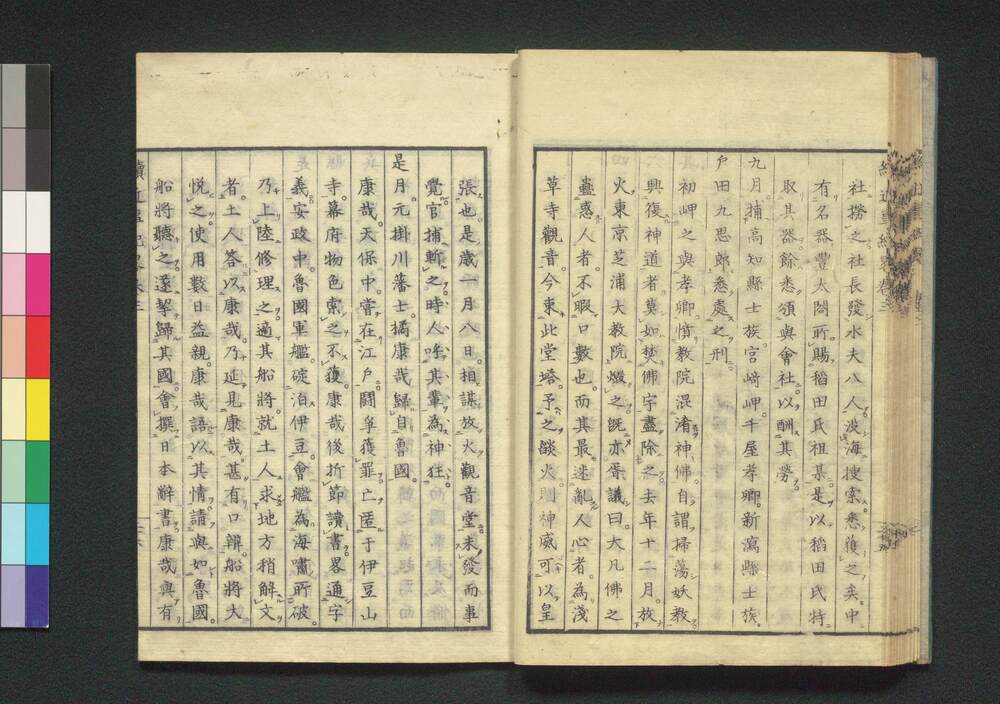 社撈之社長發水夫八人。沒海搜索。悉獲之矣。中
有名器豐太閤所賜稻田氏祖某。是以稻田氏特
取其器餘悉頒與會社。以酬其勞
九月捕高知縣士族。宮﨑岬。千屋孝卿。新瀉縣士族。
戶田九思郎。悉處之刑。
初岬之與孝卿憤教院混淆神佛。自謂掃蕩妖教
興復神道者。莫如焚佛宇盡除之。去年十二月。放
火東京芝浦大教院燬之。既亦胥議曰。大凡佛之
蠱惑人者。不暇口數也。而其最迷亂人心者。為淺
草寺觀音。今東此堂塔。予之燄火則神威可以皇
張也。是歲一月八日。相謀放火觀音堂。未發而事
覺。官捕斬之。時人呼其輩為神狂。
是月。元掛川藩士。橘康哉歸自魯國。
康哉。天保中。嘗在江戶。鬪孚獲罪。亡匿于伊豆山
寺。幕府物色索之不獲。康哉後折節讀書。畧通字
義。安政中。魯國軍艦碇泊伊豆。會艦為海嘯所破。
乃上陸修理之。適其船將。就土人求地方稍解文
者。土人答以康哉。乃延見康哉。甚有口辯。船將大
悅之。使用數日。益親。康哉語以其情。請與如魯國。
船將聽之。遂挈歸其國。會撰日本辭書。康哉與有